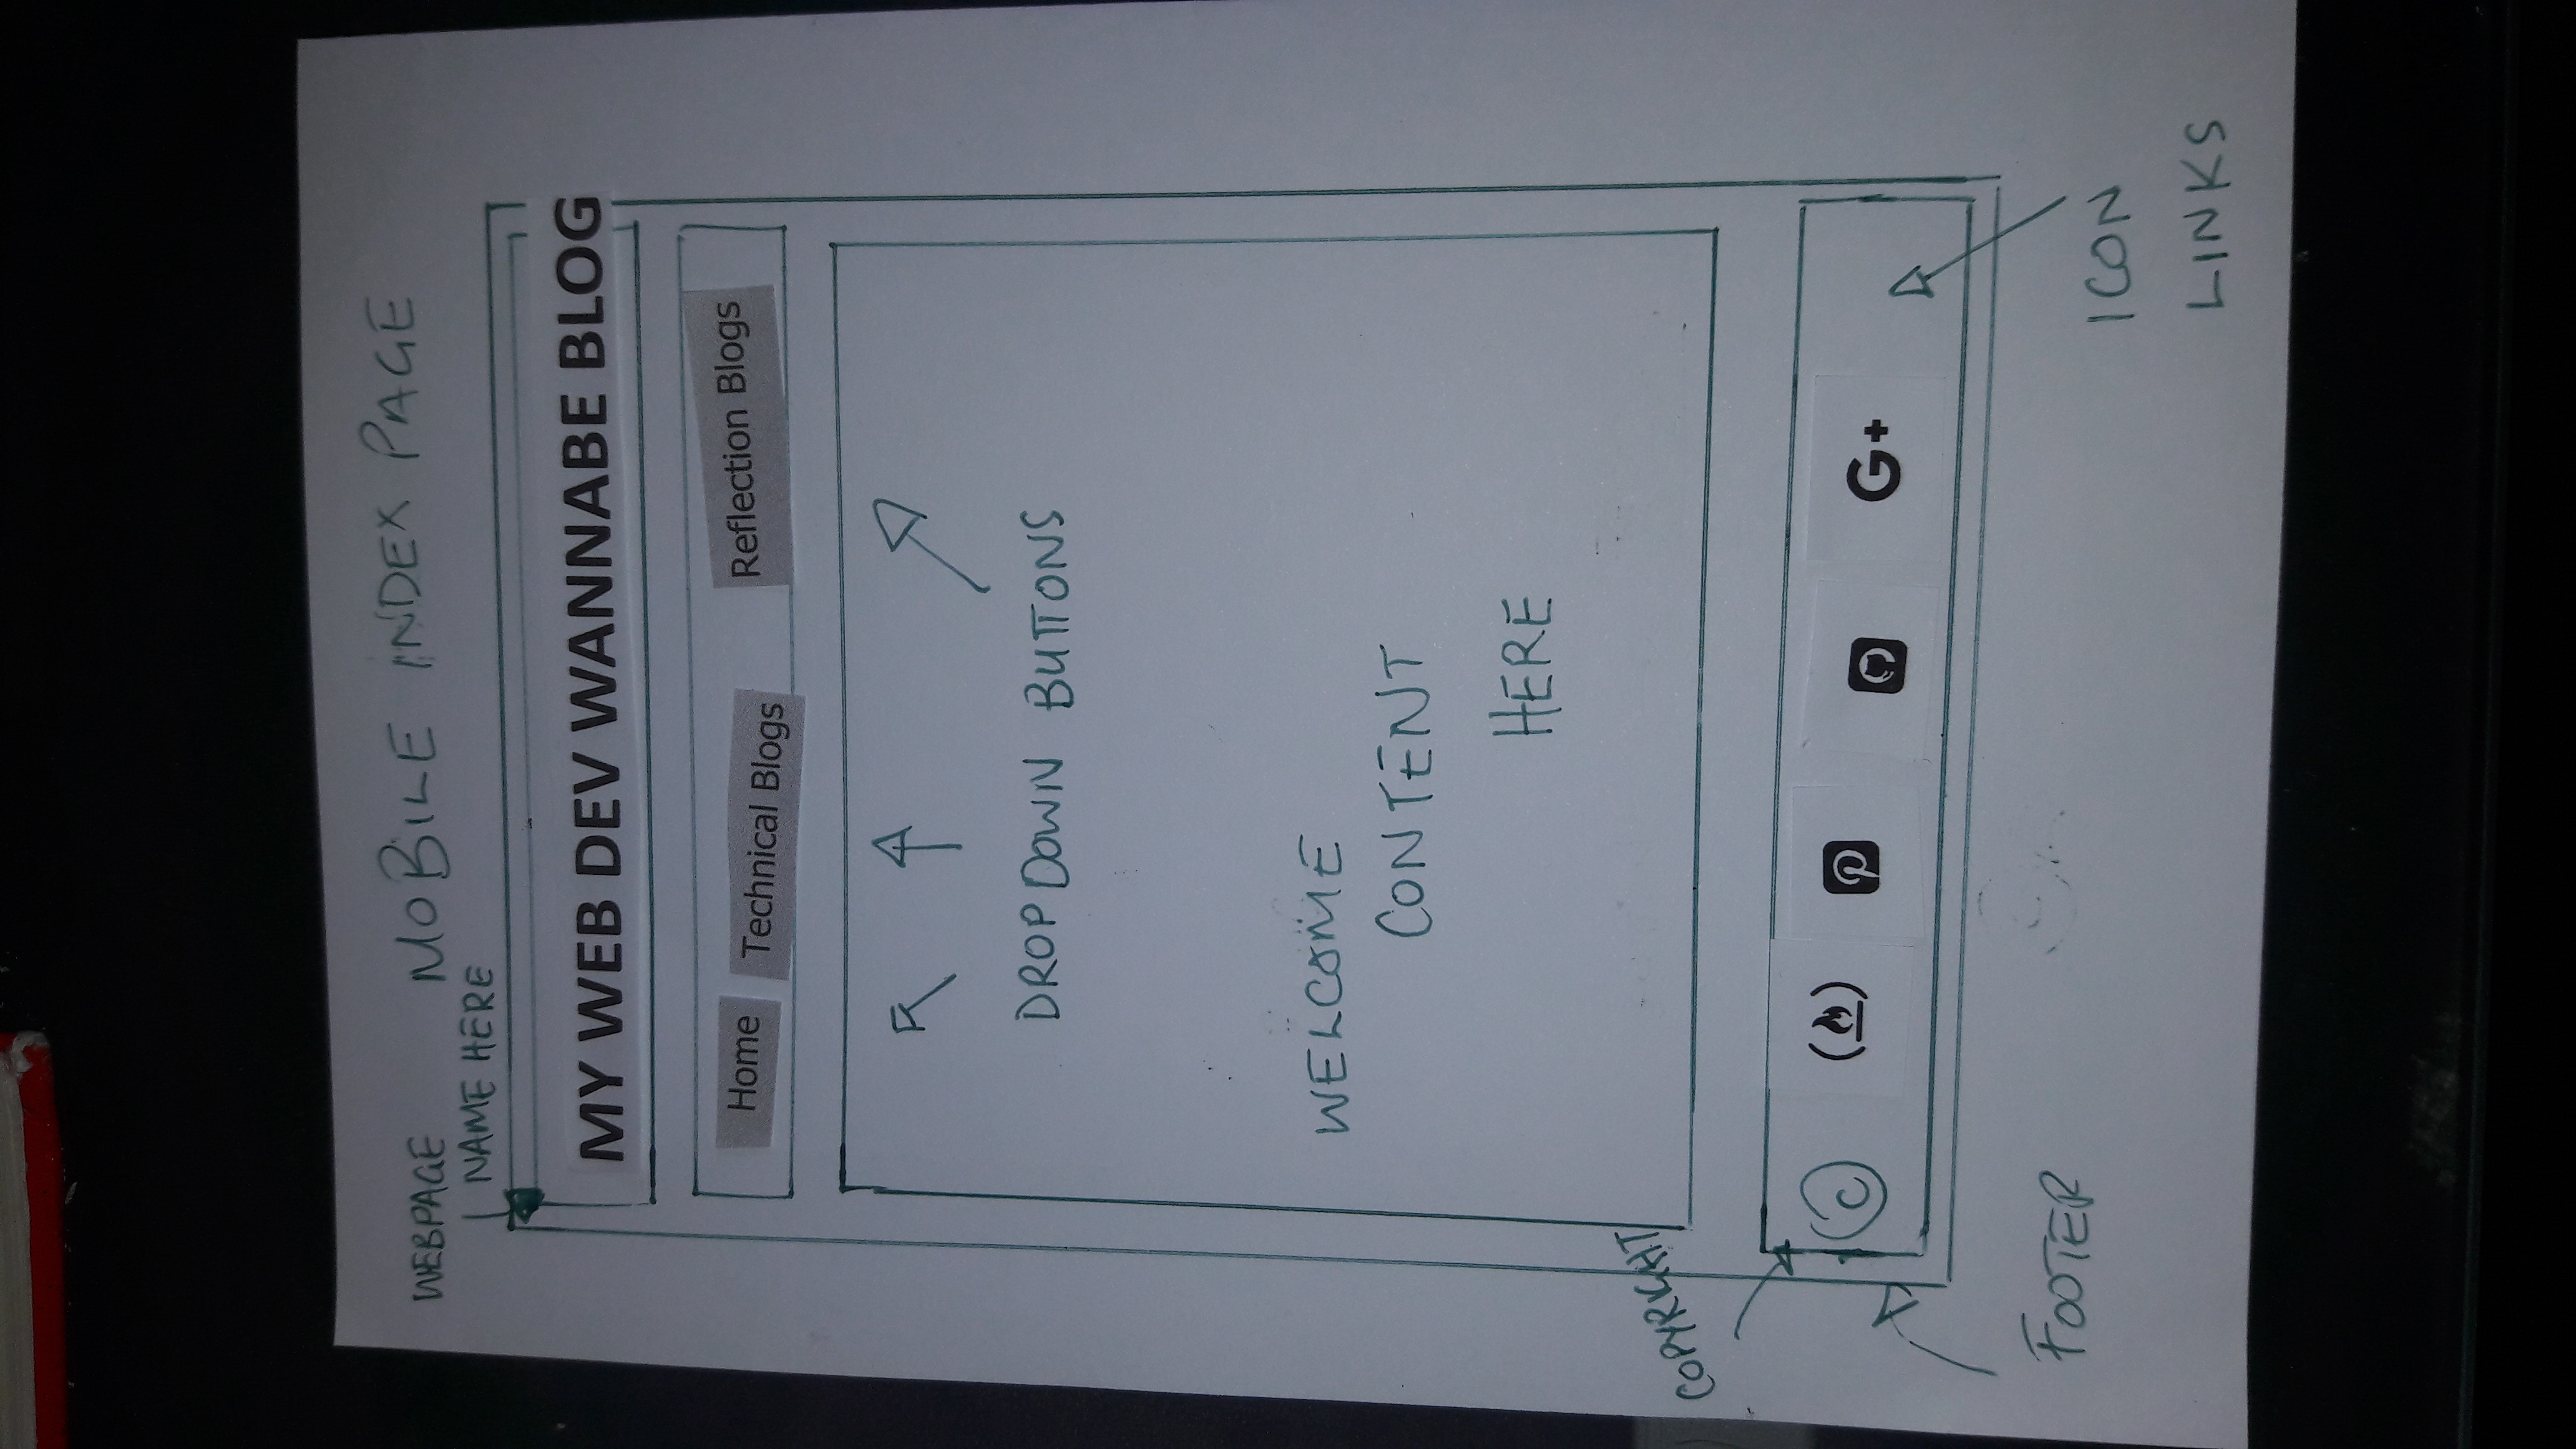 MOBILE INDEX PAGE
WEBPAGE
NAME HERE
MY WEB DEV WANNABE BLOG
Home
Technical Blogs
Reflection Blogs
DROPDOWN BUTTONS
WELCOME
CONTENT
HERE
COPYRIGHT
©
G+
FOOTER
ICON
LINKS